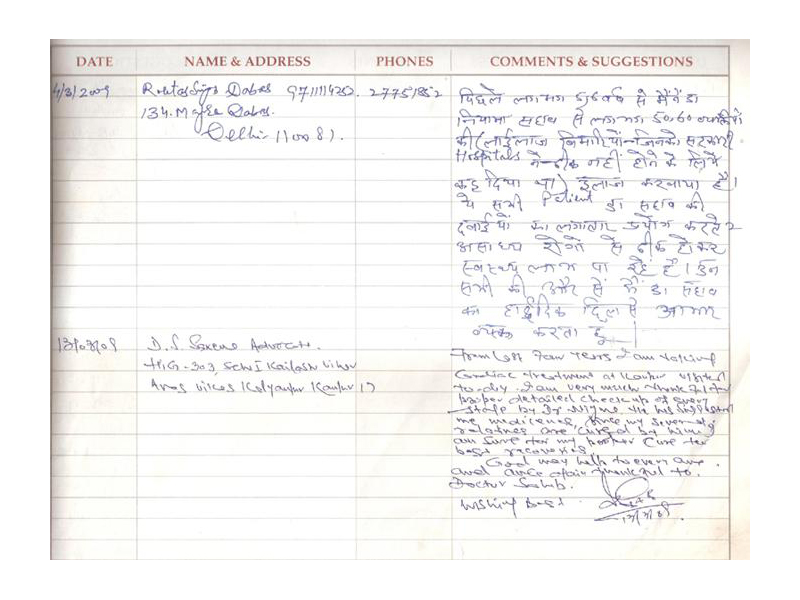 DATE NAME & ADDRESS PHONES COMMENTS & SUGGESTIONS
4/3/2009
134. M
Delhi 110081.
27751852
पिछले लगभग 5/6 वर्ष से मैंने डा
सहाब से लगभग 50/60
की (लाईलाज बिमारियों जिनको सरकारी
Hospitals ने ठीक नहीं होने के लिये
कह दिया था) ईलाज करवाया है।
ये सभी Patient डा सहाब की
दवाईयों का लगातार प्रयोग करते २
असाध्य रोगों से ठीक होकर
स्वास्थ्य लाभ पा रहे है। इन
सभी की और से मैं डा सहाब
का हार्दिक दिल से आभार
व्यक्त करता हू।
13/03/09
D. S. Saxena Advocate
HIG-303, Sch I Kailash Vihar
Avas Vikas Kalyanpur Kanpur 17
From last few years I am taking
Cardiac treatment at Kanpur
to-day. I am very much thankful for
proper detailed checkup of every
stage by Dr
me medicines, Since my several
relatives are cured by him, I
am sure for my proper cure for
best recoveries
God may help to every one.
and once again thankful to.
Doctor Sahib.
Wishing Best.
13/3/09